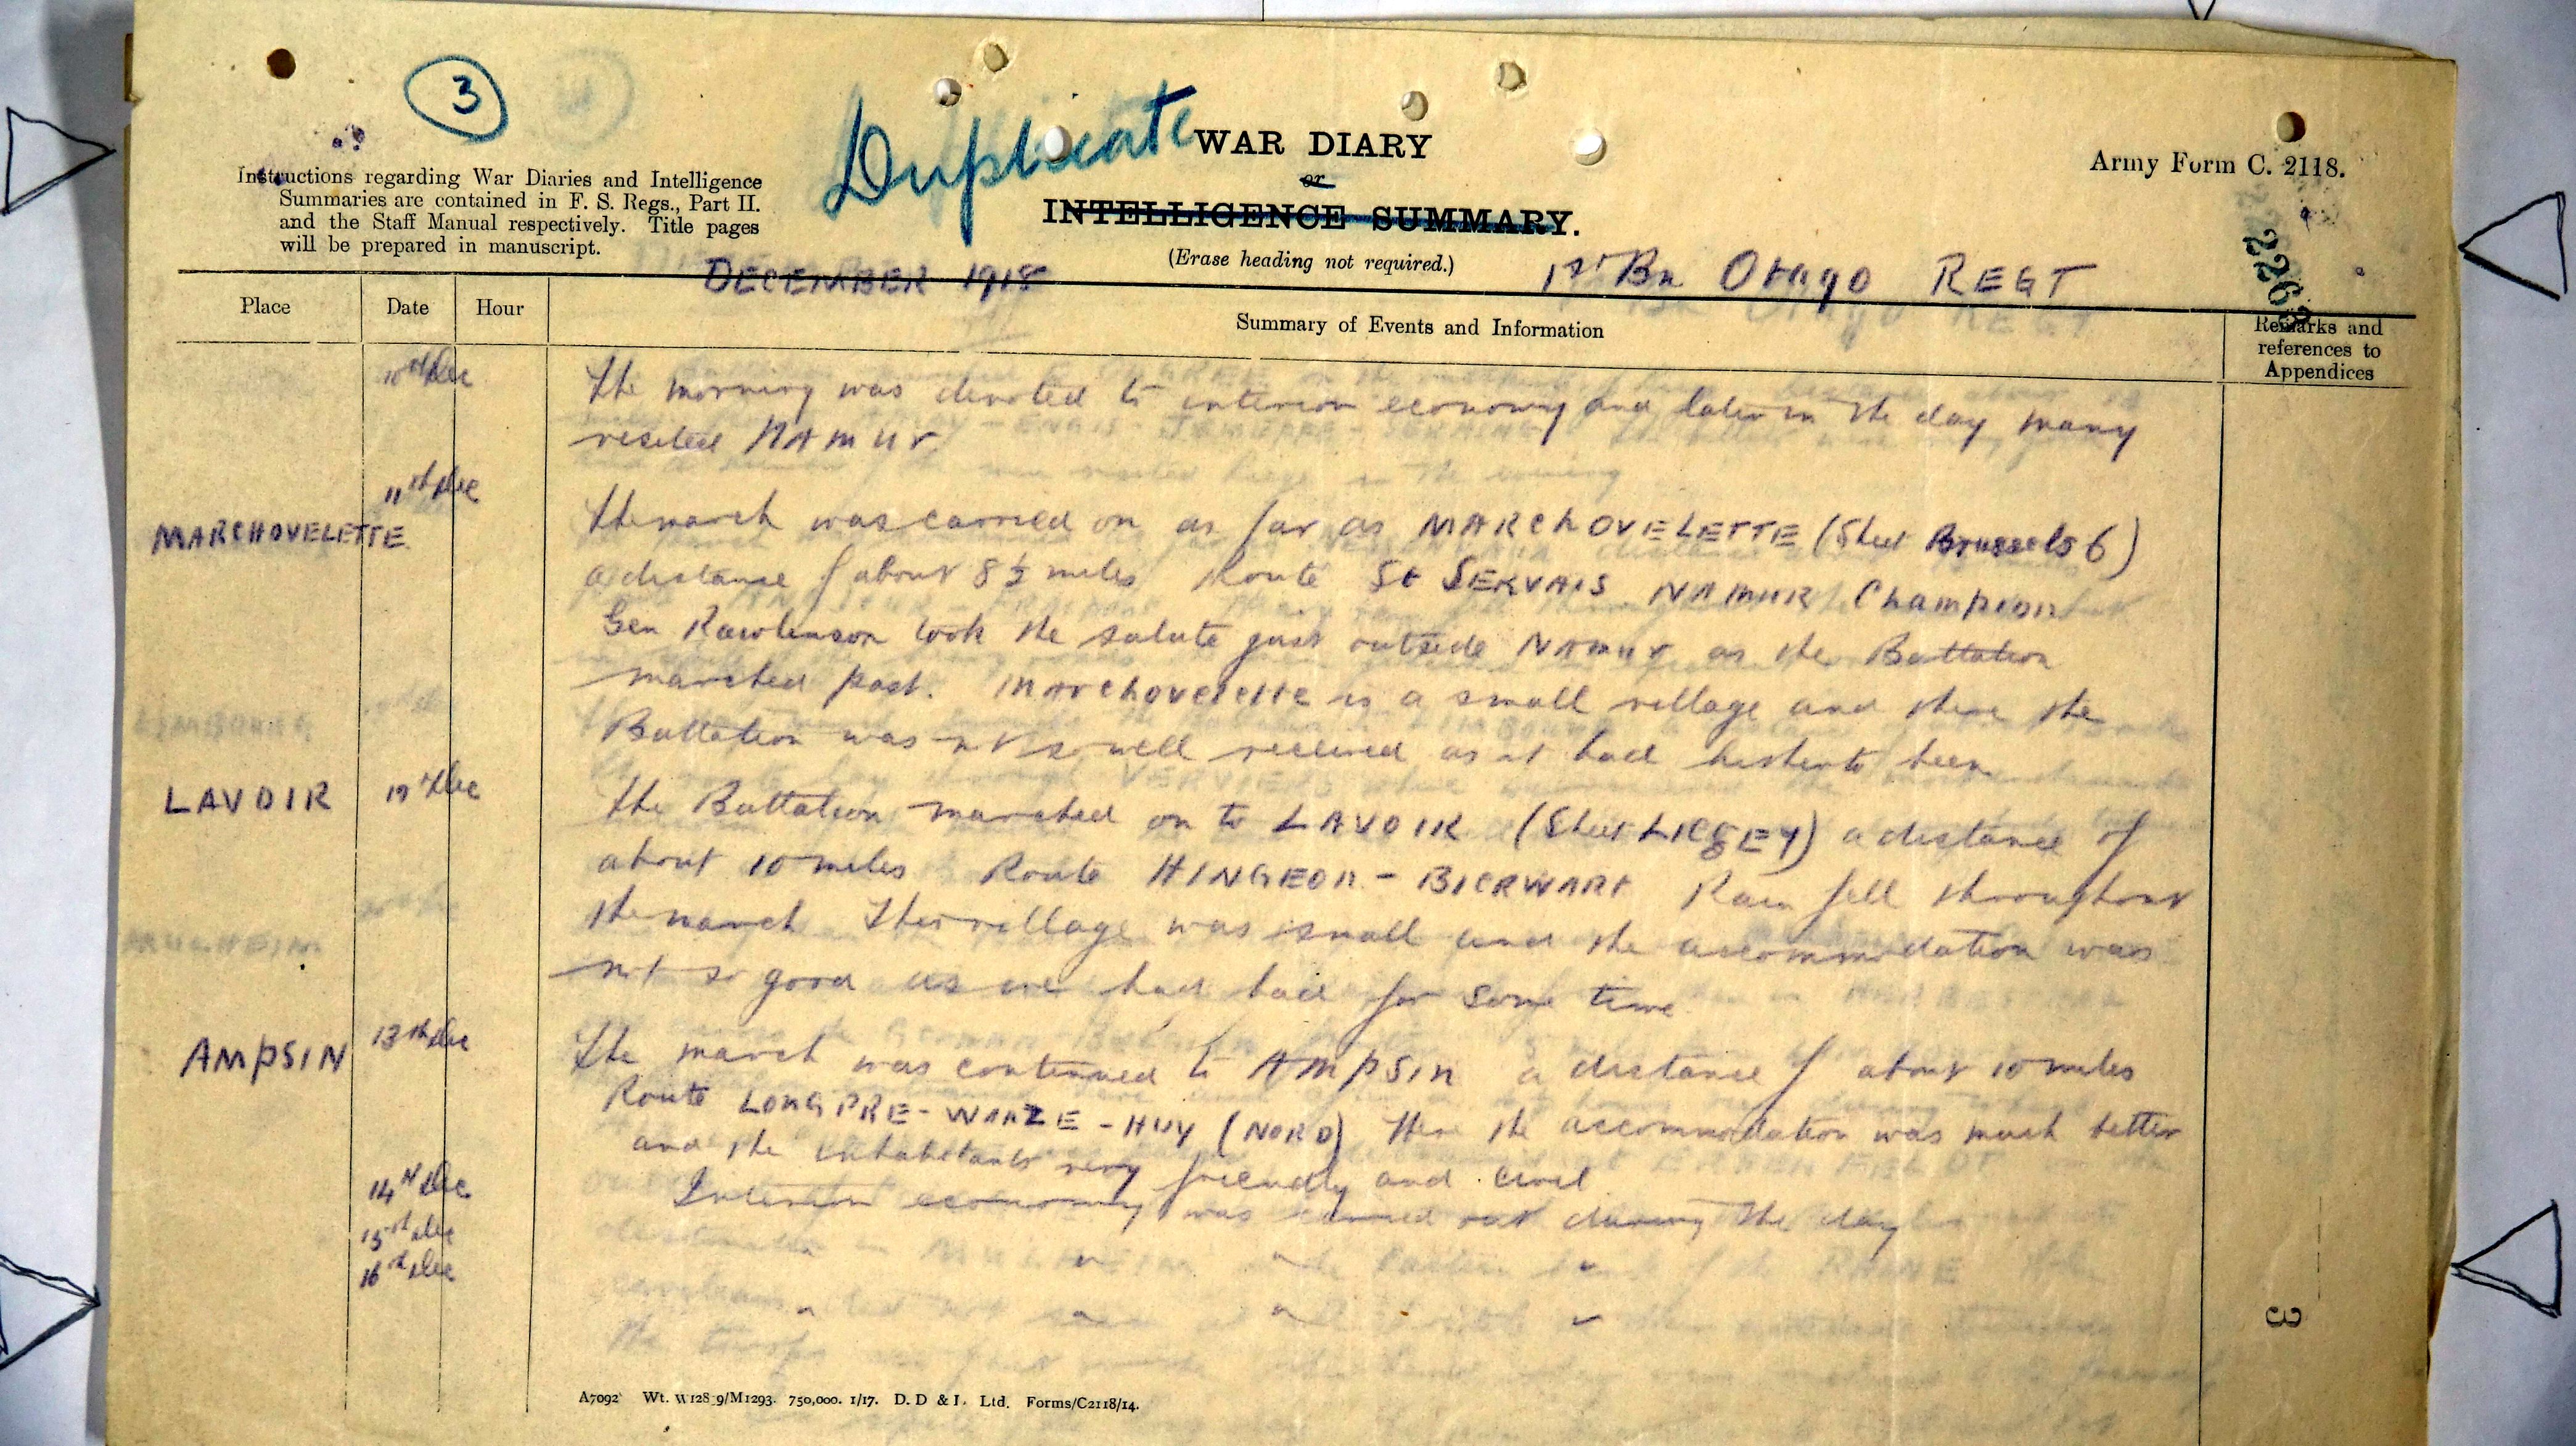 3
Duplicate
WAR DIARY
or
INTELLIGENCE SUMMARY.
(Erase heading not required.)
Army Form C. 2118.
Instructions regarding War Diaries and Intelligence
Summaries are contained in F. S. Regs., Part II.
and the Staff Manual respectively. Title pages
will be prepared in manuscript.
DECEMBER 1918
1st Bn Otago REGT
Place
Date
Hour
Summary of Events and Information
Remarks and
references to
Appendices
10th Dec
The morning was devoted to interior economy and later in the day many
visited NAMUR.
MARCHOVELETTE
11th Dec
The march was carried on as far as MARCHOVELETTE (Sheet Brussels 6)
a distance of about 8½ miles Route St SERVAIS NAMUR Champion
Gen Rawlinson took the salute just outside NAMUR as the Battalion
marched past. Marchovelette is a small village and there the
Battalion was not so well received as it had hitherto been
LAVOIR
The Battalion marched on to LAVOIR (Sheet a distance of
about 10 miles Route HINGEON - BIERWART Rain fell throughout
the march This village was small and the accommodation was
not so good as we had had for some time
AMPSIN
13th Dec
The march was continued to AMPSIN a distance of about 10 miles
Route LONGPRE - WANZE - HUY (NORD) Here the accommodation was much better
and the inhabitants very friendly and civil
14th Dec
Interior economy was carried out during the day
15th Dec
" " "
16th Dec
" " " "
3
A7092 Wt. W128 9/M1293. 750,000. 1/17. D. D & L. Ltd. Forms/C2118/14.